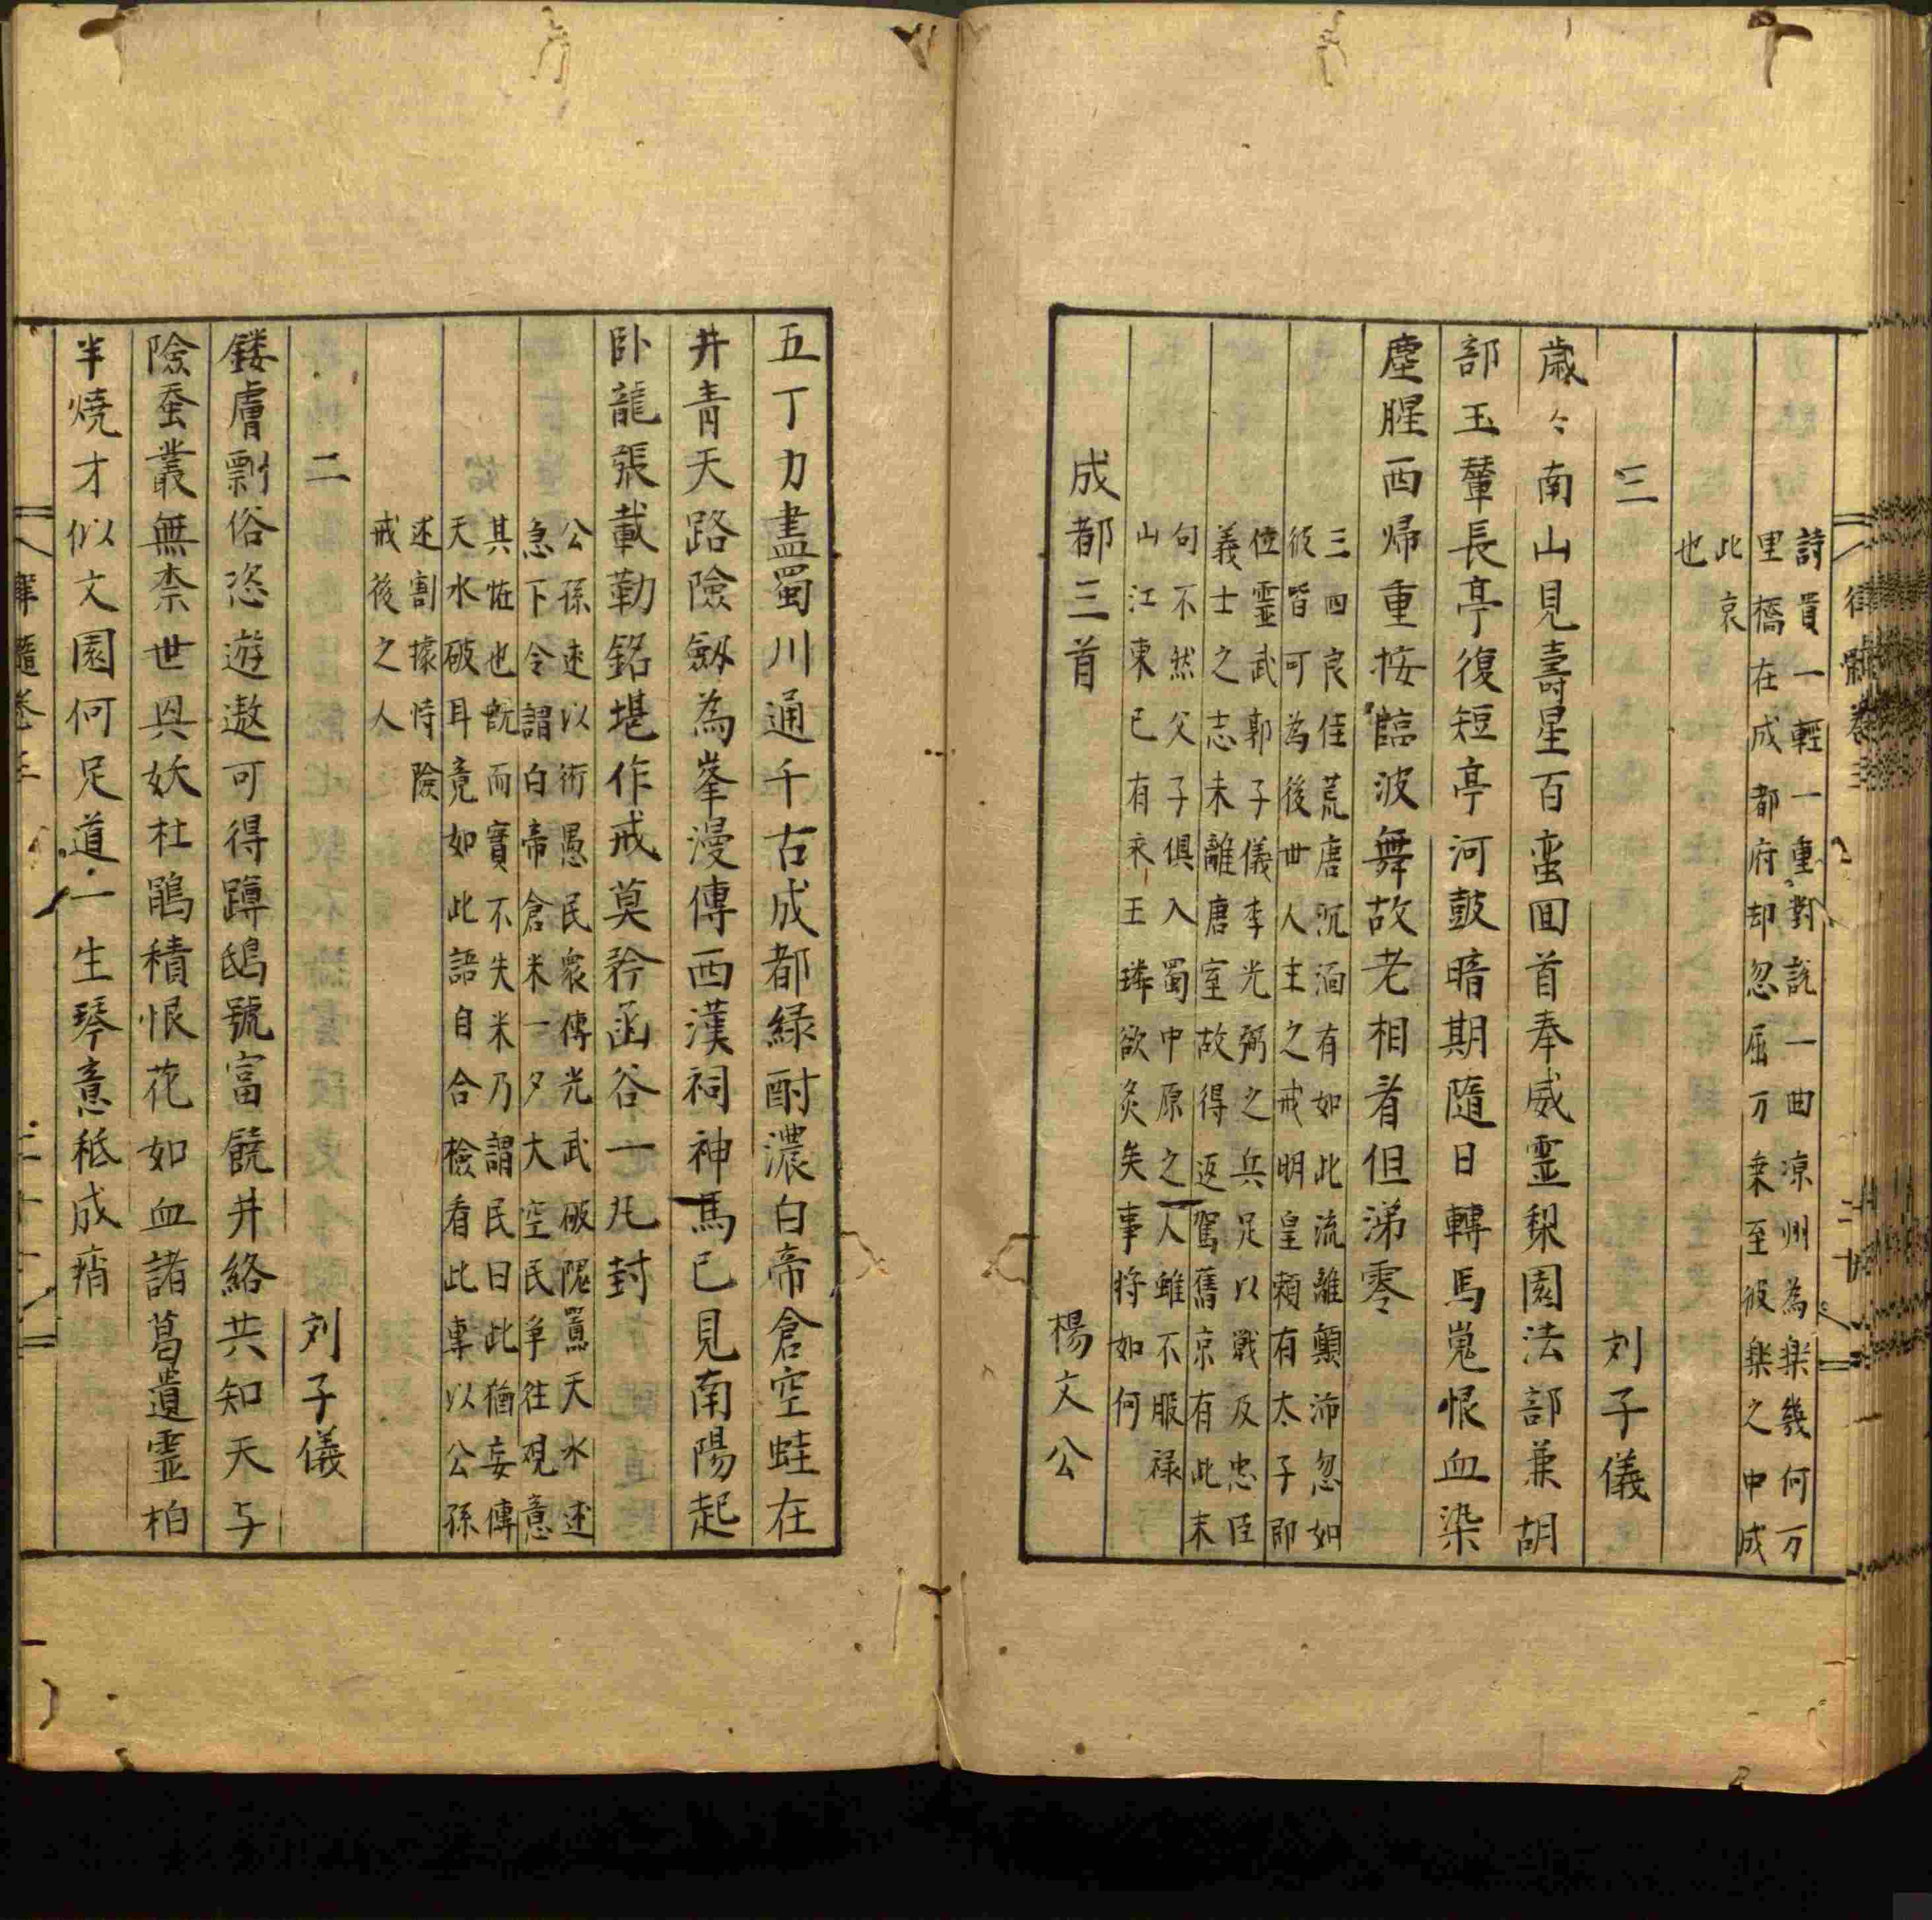 詩貫一一輕一重對説一曲凉州為楽幾何万
里橋在成都府却忽屈万乗至彼楽之中成
此哀
也
三 刘子儀
歳々南山見壽星百蛮囬首奉威霊梨園法部兼胡
部玉輦長亭復短亭河鼓暗期隨日轉馬嵬恨血染
塵腥西帰重按臨波舞故老相看但涕零
三四良佳荒唐沉湎有如此流離顛沛忽如
彼皆可為後世人主之戒明皇頼有太子即
位霊武郭子儀李光弼之兵足以戢及忠臣
義士之志未離唐室故得返駕舊京有此末
句不然父子俱入蜀中原之人雖不服禄
山江東已有永王璘欲灸矣事将如何
成都三首 楊文公
五丁力盡蜀川通千古成都緑酎濃白帝倉空蛙在
井青天路險劔為峯漫傳西漢祠神馬已見南陽起
卧龍張載勒銘堪作戒莫矜函谷一丸封
公孫述以術愚民衆傳光武破隗嚣天水述
急下令謂白帝倉米一夕大空民争往覌意
其恠也既而實不失米乃謂民曰此猶妄傳
天水破耳竟如此語自合檢看此事以公孫
述割據恃險
戒後之人
二 刘子儀
鏤膚剽俗恣遊遨可得蹲鴟號富饒井絡共知天与
險蚕叢無柰世與妖杜鵑積恨花如血諸葛遺霊柏
半燒才似文園何足道一生琴意秪成痟